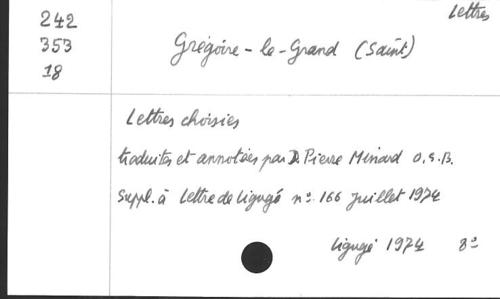 Lettres
242
353
18
Grégoire-le-Grand (Saint)
Lettres choisies
traduites et annotées par D. Pierre Minard O.S.B.
Suppl. à Lettre de Ligugé nº 166 juillet 1974
Ligugé 1974 8º